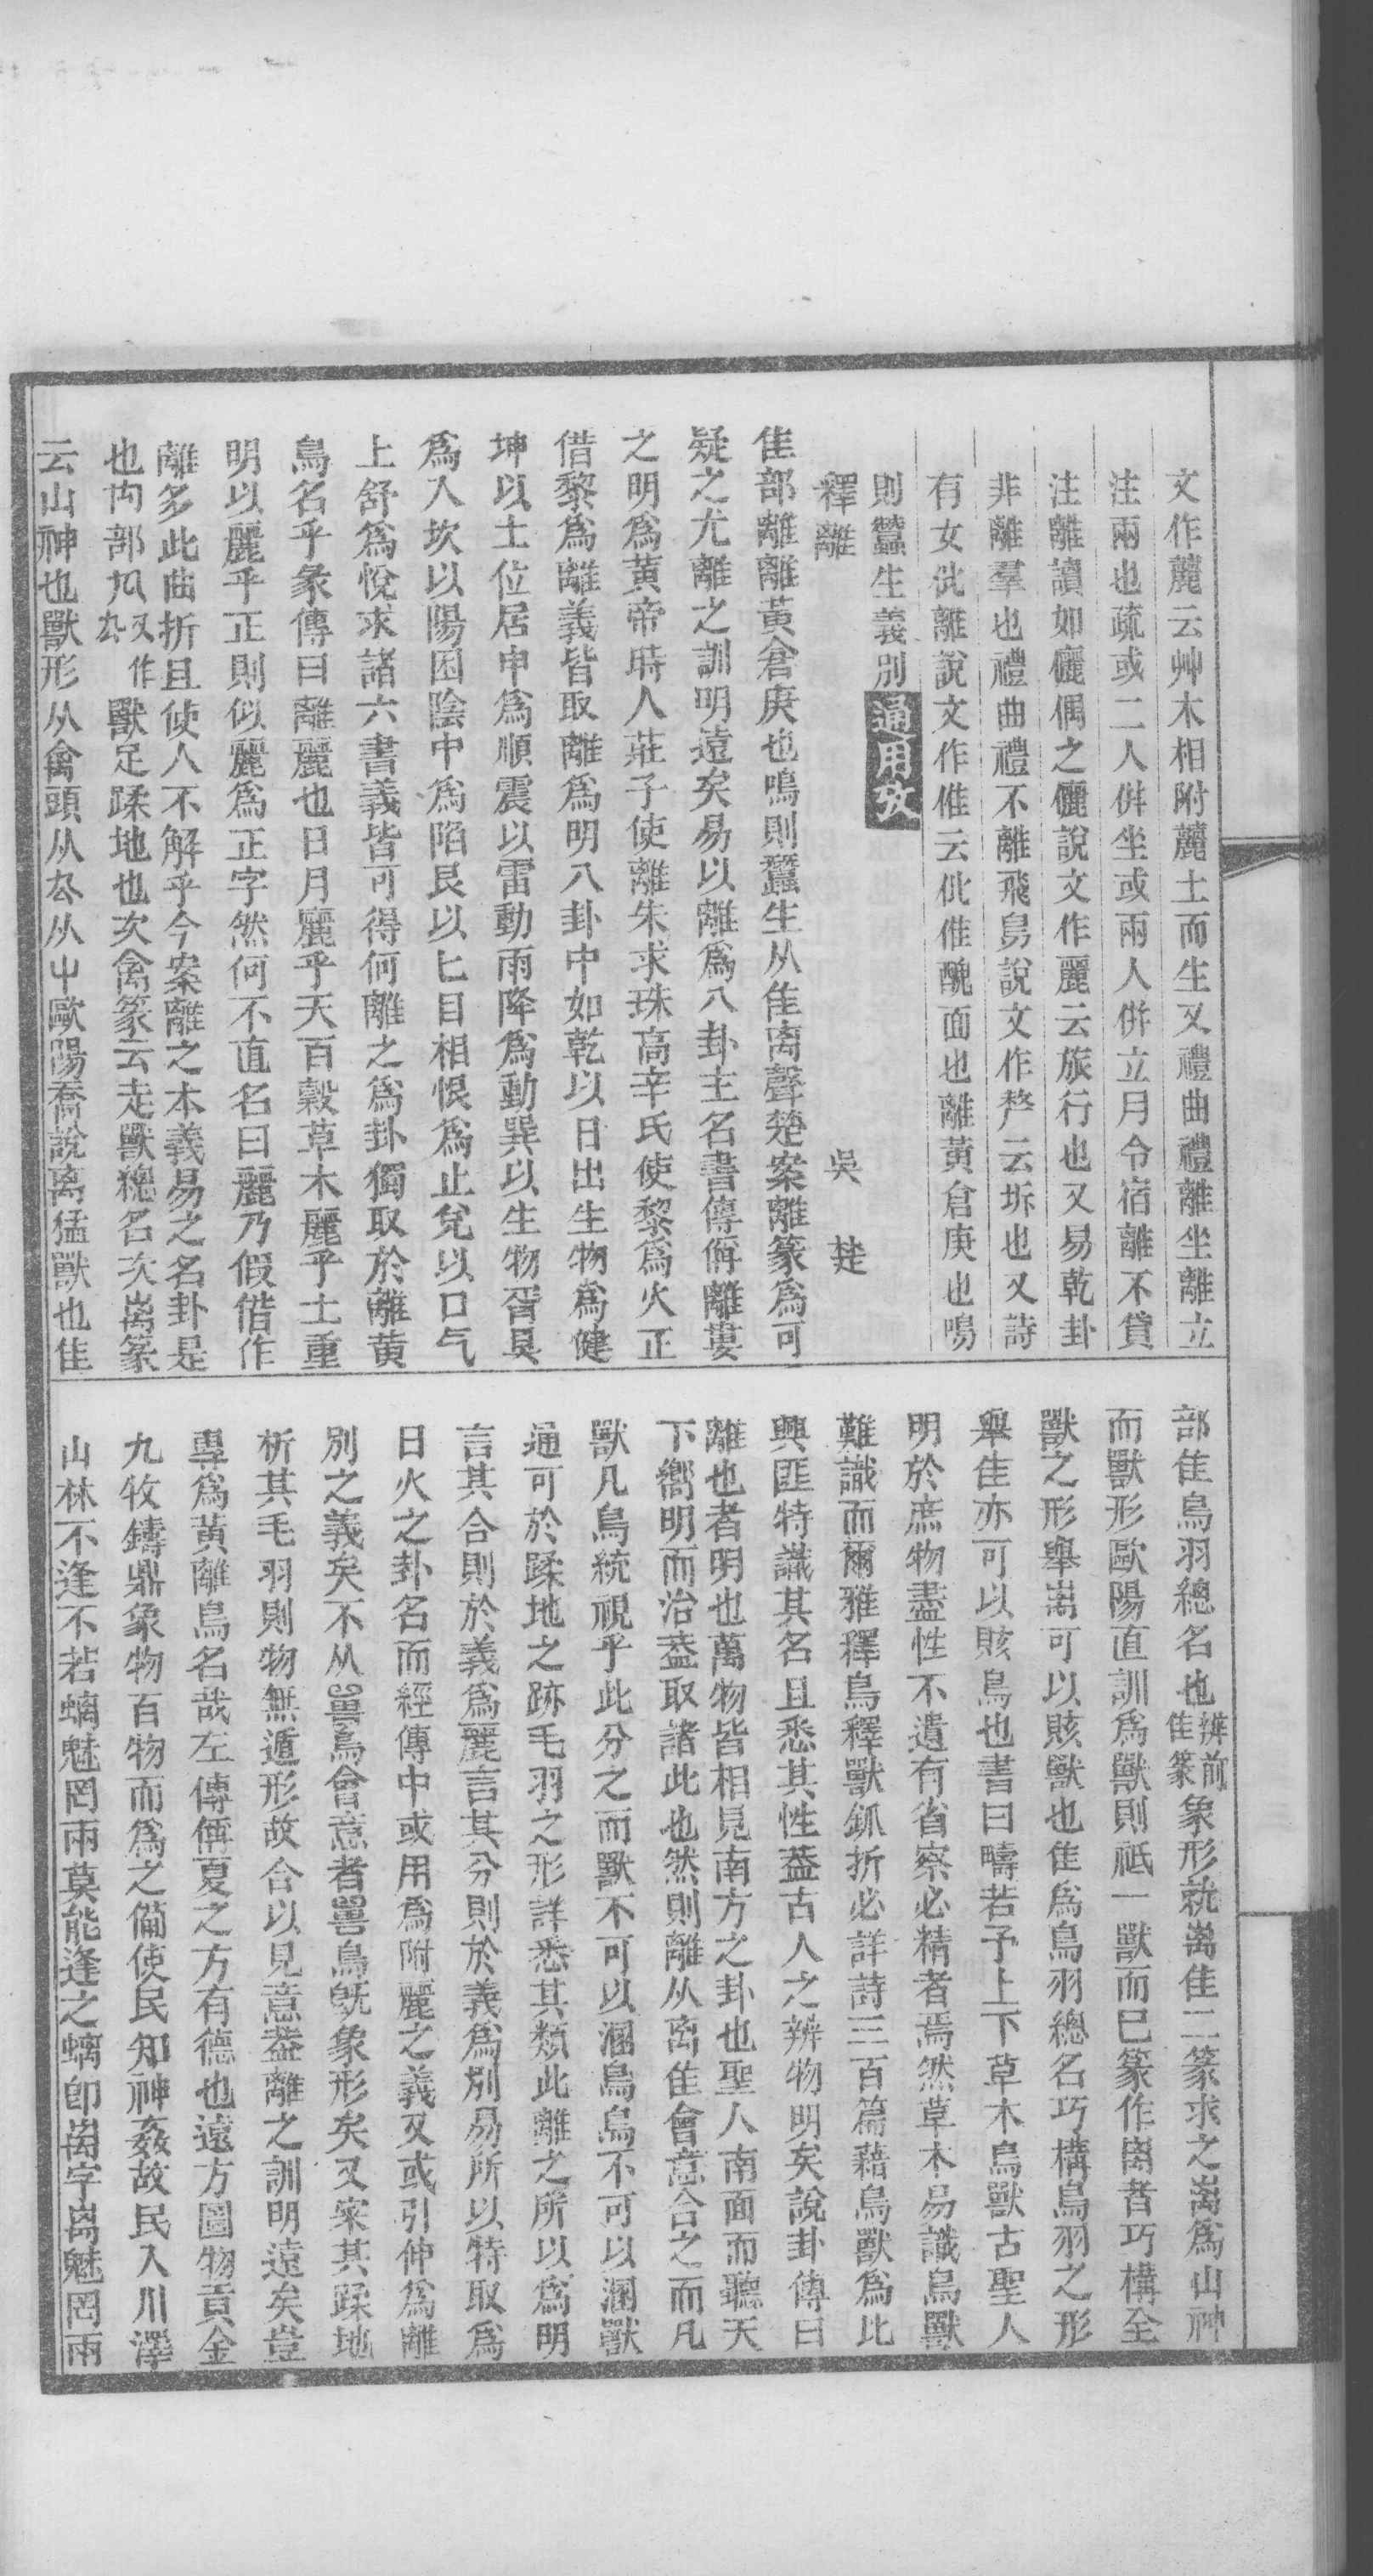 文作麓云艸木相附麓土而生又禮曲禮離坐離立
注兩也疏或二人倂坐或兩人倂立月令宿離不貸
注離讀如儷偶之儷說文作麗云旅行也又易乾卦
非離羣也禮曲禮不離飛鳥說文作㸚云坼也又詩
有女仳離說文作倠云仳倠醜面也離黃倉庚也鳴
則蠶生義别通用攷
釋離　吳楚
隹部離離黃倉庚也鳴則蠶生从隹离聲楚案離篆爲可
疑之尤離之訓明遠矣易以離爲八卦主名書傳偁離婁
之明爲黃帝時人莊子使離朱求珠高辛氏使黎爲火正
借黎爲離義皆取離爲明八卦中如乾以日出生物爲健
坤以土位居申爲順震以雷動雨降爲動巽以生物胥具
爲入坎以陽囦陰中爲陷艮以匕目相恨爲止兌以口气
上舒爲悅求諸六書義皆可得何離之爲卦獨取於離黃
鳥名乎彖傳曰離麗也日月麗乎天百穀草木麗乎土重
明以麗乎正則似麗爲正字然何不直名曰麗乃假借作
離多此曲折且使人不解乎今案離之本義易之名卦是
也禸部禸又作厹獸足蹂地也次禽篆云走獸緫名次离篆
云山神也獸形从禽頭从厹从屮歐陽喬說离猛獸也隹
部隹鳥羽總名也辨前隹篆象形就离隹二篆求之离爲山神
而獸形歐陽直訓爲獸則祗一獸而已篆作离者巧構全
獸之形舉离可以賅獸也隹爲鳥羽總名巧構鳥羽之形
舉隹亦可以賅鳥也書曰疇若予上下草木鳥獸古聖人
明於庶物盡性不遺有省察必精者焉然草木易識鳥獸
難識而爾雅釋鳥釋獸釽折必詳詩三百篇藉鳥獸爲比
興匪特識其名且悉其性葢古人之辨物明矣說卦傳曰
離也者明也萬物皆相見南方之卦也聖人南面而聽天
下嚮明而治葢取諸此也然則離从离隹會意合之而凡
獸凡鳥統視乎此分之而獸不可以溷鳥鳥不可以溷獸
通可於蹂地之跡毛羽之形詳悉其類此離之所以爲明
言其合則於義爲麗言其分則於義爲别易所以特取爲
日火之卦名而經傳中或用爲附麗之義又或引伸爲離
别之義矣不从嘼鳥會意者嘼鳥旣象形矣又寀其蹂地
析其毛羽則物無遁形故合以見意葢離之訓明遠矣豈
專爲黃離鳥名哉左傳偁夏之方有德也遠方圖物貢金
九牧鑄鼎象物百物而爲之備使民知神姦故民入川澤
山林不逢不若螭魅罔兩莫能逢之螭卽离字离魅罔兩